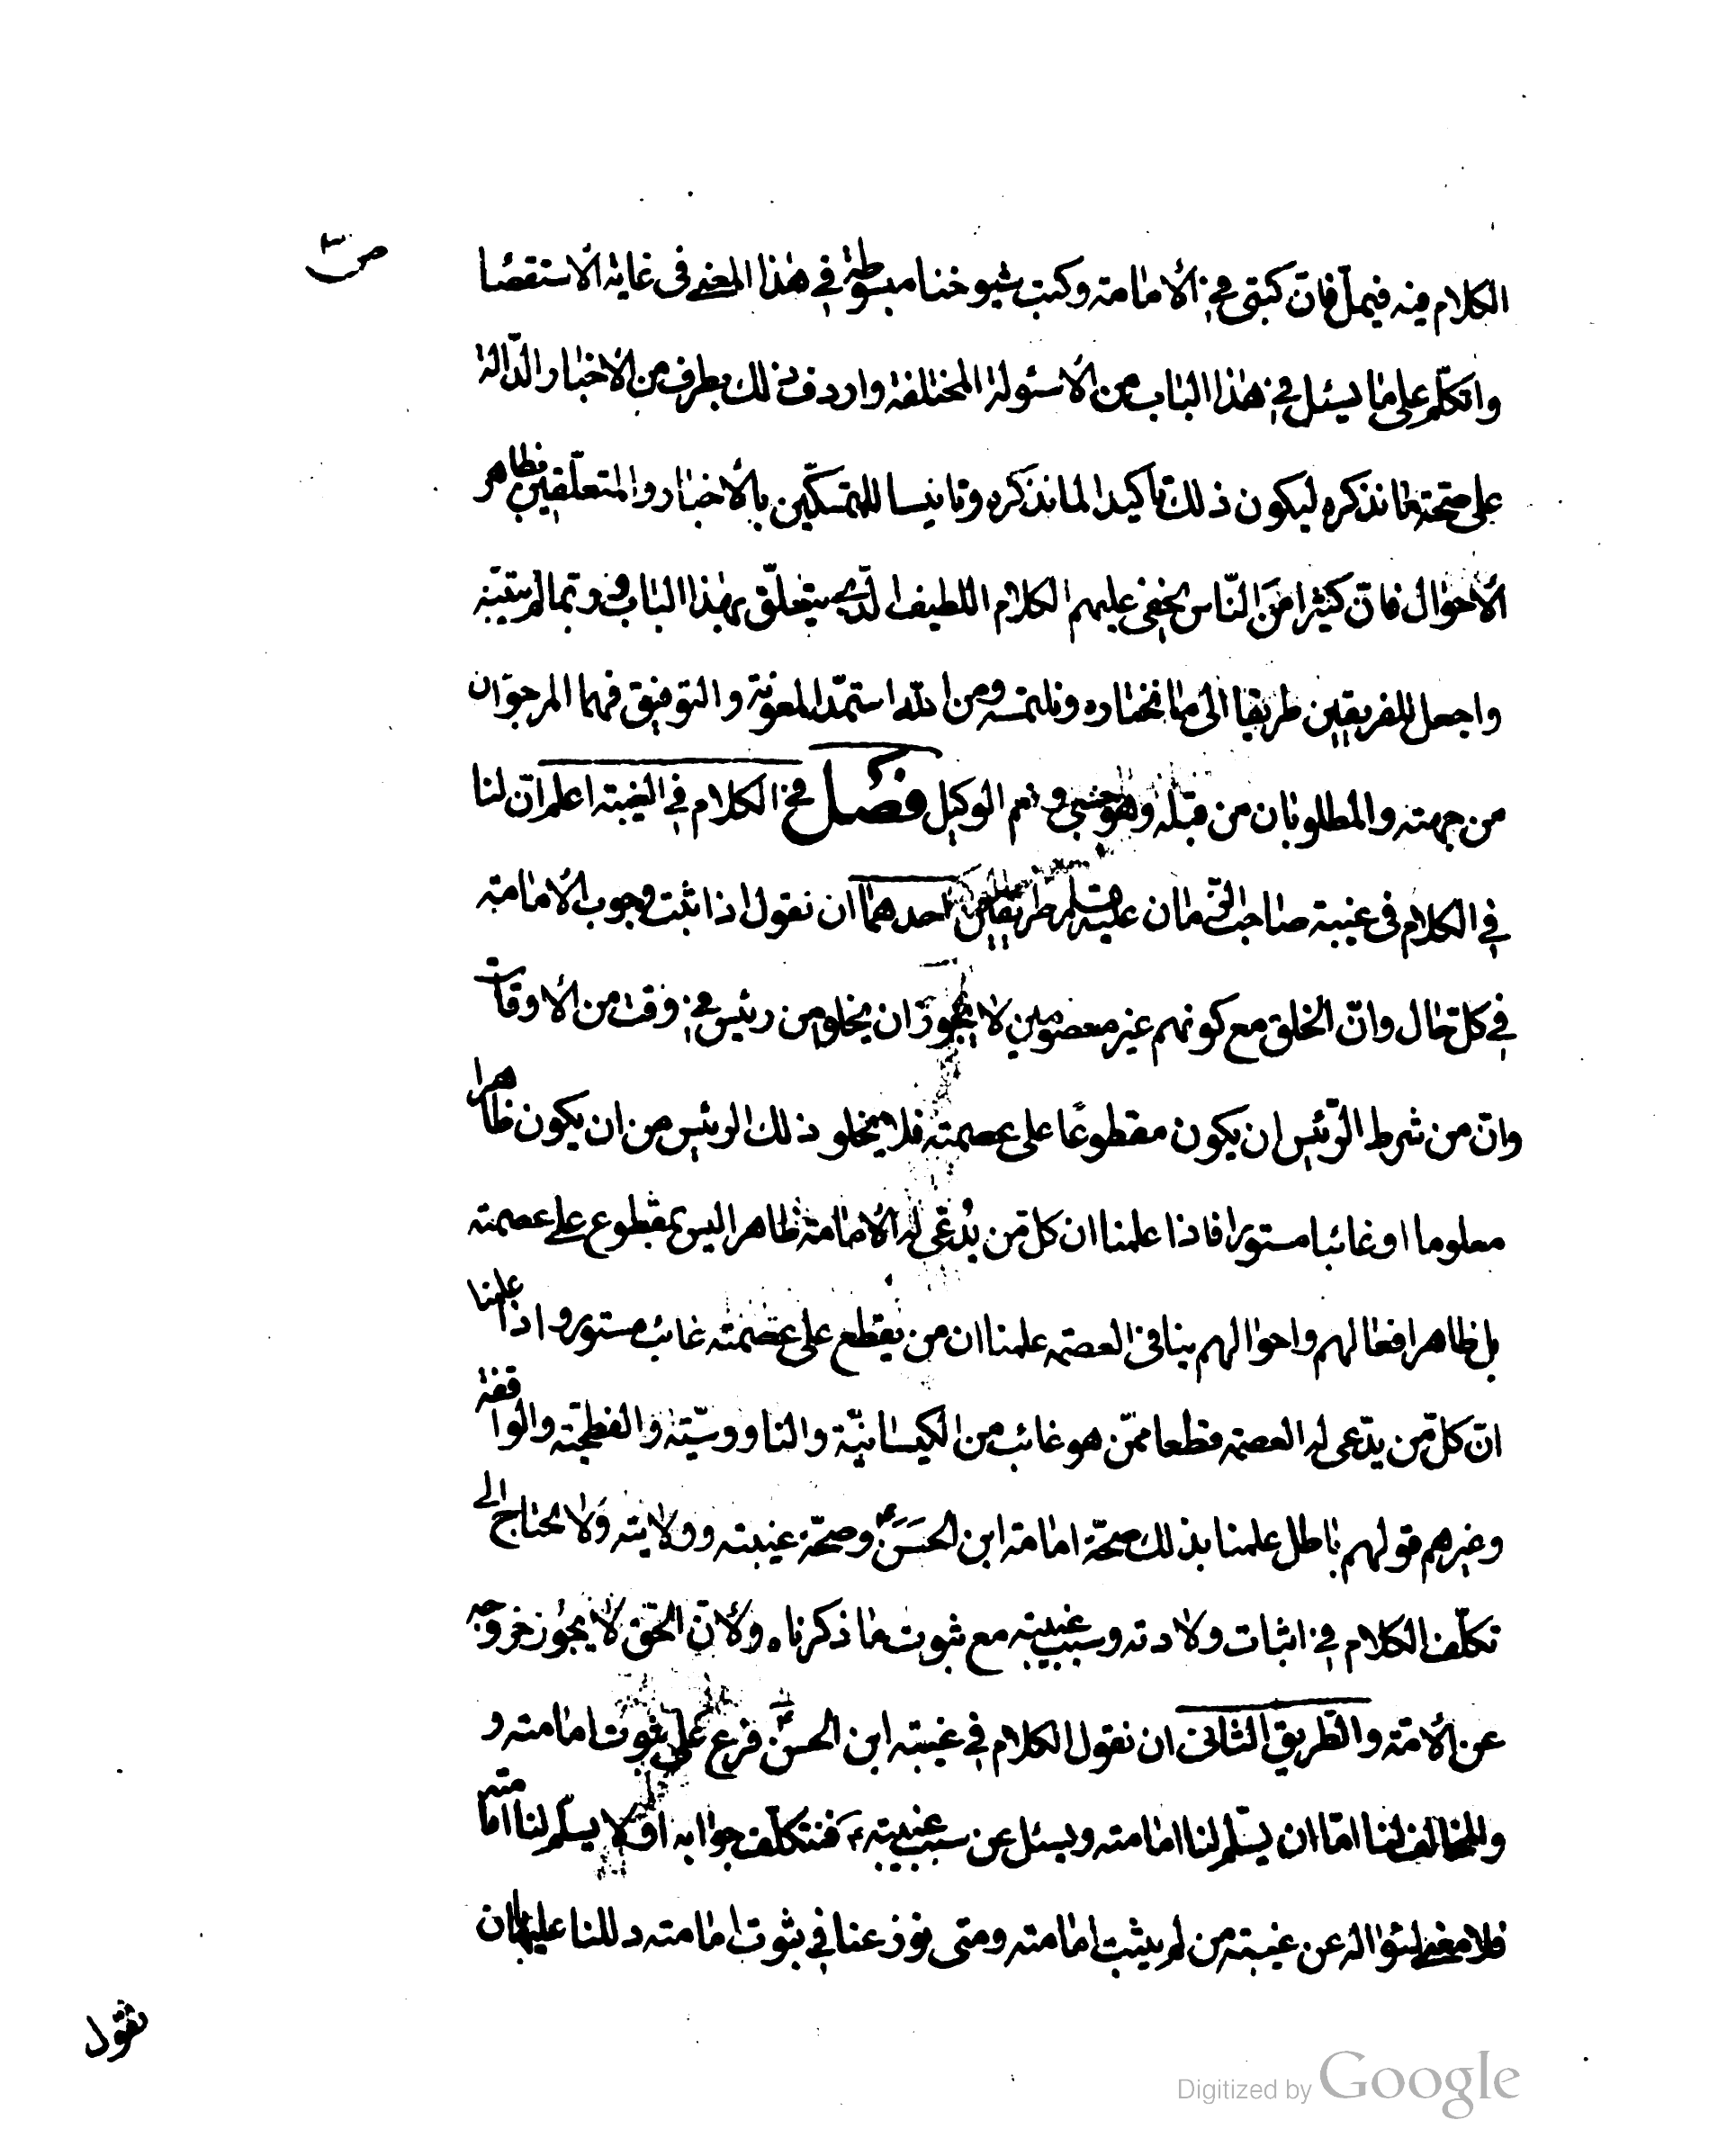 ص٣
الكلام فيه فيملّ فانّ كتبى فى الأمامة وكتب شيوخنا مبسوطة فى هذا المعنى فى غاية الاستقصا
واتكلّم على ما يسئل فى هذا الباب من الأسئولة المختلفة واردف ذلك بطرف من الأخبار الدّالة
على صحّة ما نذكره ليكون ذلك تاكيدا لما نذكره وتانيسا للمتمسّكين بالأخبار والمتعلّقين بظاهر
الأحوال فانّ كثيرا من النّاس يخفى عليهم الكلام اللطيف الّذى يتعلّق بهذا الباب وربّما لم يتبيّنه
واجعل للفريقين طريقا الى ما نختاره ونلتمسه ومن الله استمدّ المعونة والتوفيق فهما المرجوّان
من جهته والمطلوبان من قبله وهو حسبى ونعم الوكيل فصل فى الكلام فى الغيبة اعلم انّ لنا
فى الكلام فى غيبة صاحب الزّمان عليه السلم طريقين احدهما ان نقول اذا ثبت وجوب الأمامة
فى كلّ حال وانّ الخلق مع كونهم غير معصومين لا يجوز ان يخلو من رئيس فى وقت من الأوقات
وانّ من شرط الرّئيس ان يكون مقطوعًا على عصمته فلا يخلو ذلك الرئيس من ان يكون ظاهرا
معلوما او غائبا مستورا فاذا علمنا ان كلّ من يُدعّى له الأمامة ظاهرا ليس بمقطوع على عصمته
بل ظاهر افعالهم واحوالهم ينافى العصمة علمنا ان من يقطع على عصمته غائب مستور واذا علمنا
انّ كلّ من يدّعى له العصمة قطعا ممّن هو غائب من الكيسانيّة والناووسيّة والفطحيّة والواقفة
وغيرهم قولهم باطل علمنا بذلك صحّة امامة ابن الحسَنَ ع وصحّة غيبته وولايته ولا نحتاج الى
تكلّف الكلام فى اثبات ولادته وسبب غيبته مع ثبوت ما ذكرناه ولأنّ الحّق لا يجوز خروجه
عن الأمّة والطّريق الثانى ان نقول الكلام فى غيبة ابن الحسن ع فرع على ثبوت امامته و
والمخالف لنا امّا ان يسّلم لنا امامته ويسئل عن سبب غيبته ع فنتكلّف جوابه او لا يسلّم لنا امامته
فلا معنى لسؤاله عن غيبة من لم يثبت امامته ومتى نوزعنا فى ثبوت امامته دللنا عليها بان
نقول
Digitized by Google